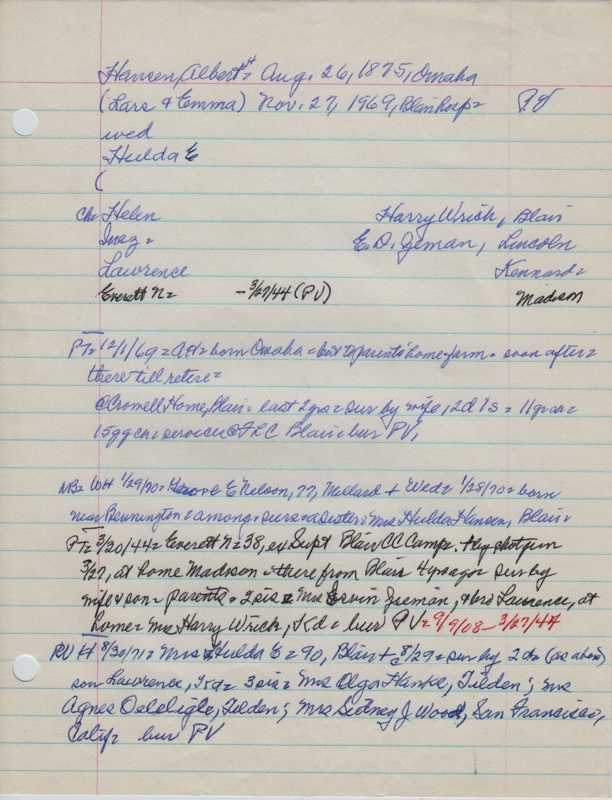 Hansen, Albert H = Aug. 26, 1875, Omaha
(Lars & Emma) Nov. 27, 1969, Blair Hosp = PV
wed
Hulda E
(
Ch: Helen Harry Wrich, Blair
Inez = E. D. Zeman, Lincoln
Lawrence Kennard =
Everett N = - 3/27/44 (PV) Madison
PT = 12/1/69 = AH = born Omaha = but to parents' home farm = soon after =
there till retire =
@ Crowell Home, Blair = last 2 yrs = sur by wife, 2d 1s = 11 gcn =
15 ggcn = services @ FLC Blair = bur PV,
NB = WH 1/29/70 = E Nelson, 77, Millard + Wed = 1/28/70 = born
near Bennington = among surs = a sister = Mrs Hulda Hansen, Blair =
PT = 3/30/44 = Everett N = 38, ex Supt Blair CC Camp. + by shotgun
3/27, at home Madison = there from Blair 4 yrs ago = sur by
wife & son = parents = 2 sis = Mrs Ervin Zeman, & bro Lawrence, at
home = Mrs Harry Wrich, Kd = bur PV = 9/9/08 - 3/27/44
RV H 8/30/71 = Mrs Hulda E = 90, Blair + 8/29 = sur by 2d = (as above)
son Lawrence, Kd = 3 sis = Mrs Olga Hanke, Tilden; Mrs
Agnes Tilden; Mrs Sidney J Wood, San Francisco,
Calif = bur PV